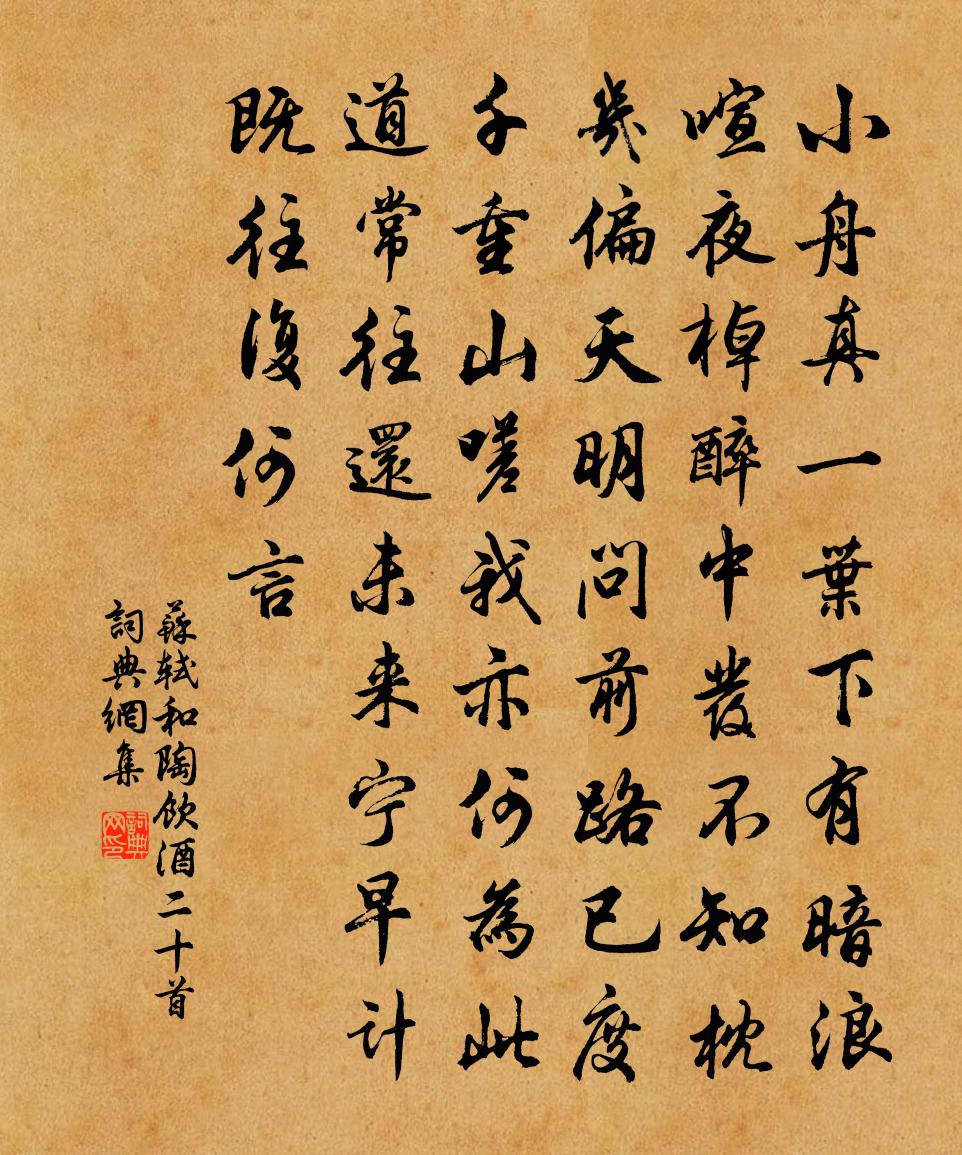 小舟真一葉下有暗浪
喧夜棹醉中發不知枕
幾偏天明問前路已度
千重山嗟我亦何為此
道常往還未来宁早计
既往復何言
蘇軾和陶飲酒二十首
詞典網集
詞典網印